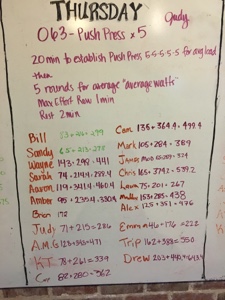 THURSDAY
Judy
063 - Push Press x 5
20 min to establish Push Press 5-5-5-5-5 for avg load
then
5 rounds for average "average watts"
Max Effort Row 1 min
Rest 2 min
Bill
Sandy 65 + 213 = 278
Wayne 143 + 298 = 441
Sarah 74 + 214.4 = 288.4
Aaron 119 + 341.4 = 460.4
Amber 95 +
Brian 172
Judy 71 + 215 = 286
A.M.G 123 + 348 = 471
KT 78 + 261 = 339
82 + 280 = 362
Cam 135 + 364.4 = 499.4
Mark 105 + 284 = 389
James
Chris 165 +
Laura 75 + 201 = 267
Maddy 153 + 285 = 438
Alex 125 + 351 = 476
Emma 46 + 176 = 222
Trip 162 + 388 = 550
Drew 203 + 440.4 =